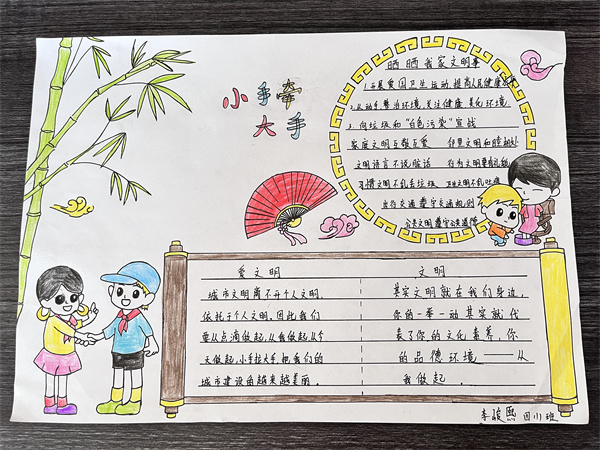 小手牵
大手
晒晒我家文明事
1.开展爱国卫生运动,提高人民健康水平
2.从动手整治环境,关注健康,美化环境
3.向垃圾和"白色污染"宣战
家庭文明互敬互爱
文明语言不说脏话
习惯文明不乱丢垃圾
出行交通遵守交通规则
公共文明遵守公共道德
爱文明
城市文明离不开个人文明,
依托于个人文明,因此我们
要从点滴做起,从我做起,从今
天做起,小手拉大手,把我们的
城市建设的越来越美丽。
文明
其实文明就在我们身边,
你的一举一动其实就代
表了你的文化素养,你
的品德环境——从
我做起.
李骏熙 四11班